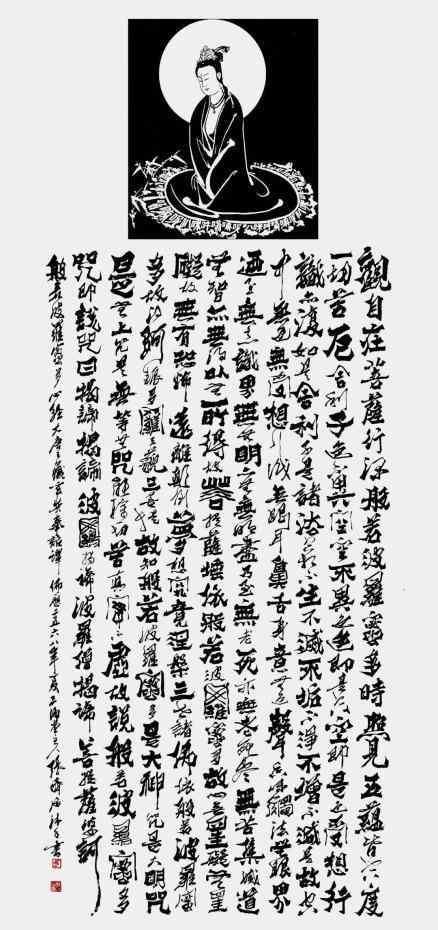 觀自在菩薩行深般若波羅蜜多時照見五蘊皆空度
一切苦厄舍利子色不異空空不異色色即是空空即是色受想行
識亦復如是舍利子是諸法空相不生不滅不垢不淨不增不減是故空
中無色無受想行識無眼耳鼻舌身意無色聲香味觸法無眼界
迺至無意識界無無明亦無無明盡乃至無老死亦無老死盡無苦集滅道
無智亦無得以無所得故菩提薩埵依般若波羅蜜多故心無罣礙無罣
礙故無有恐怖遠離顛倒夢想究竟涅槃三世諸佛依般若波羅蜜
多故得阿耨多羅三藐三菩提故知般若波羅蜜多是大神咒是大明咒
是無上咒是無等等咒能除一切苦真實不虛故說般若波羅蜜多
咒即說咒曰揭諦揭諦波羅揭諦波羅僧揭諦菩提薩婆訶
般若波羅蜜多心經大唐三藏玄奘奉詔譯佛曆二五六八年書